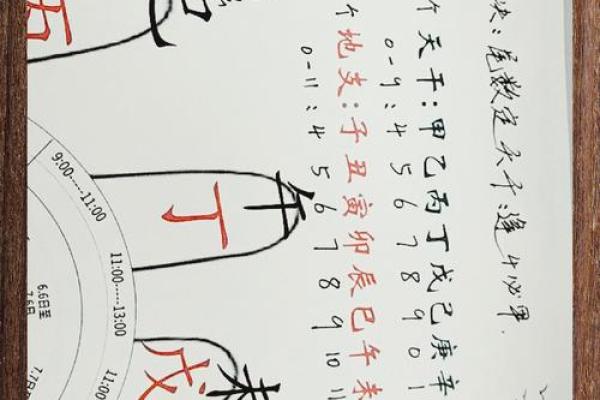 诀：尾数定天干：逢4必甲.
个天干：甲乙丙丁戊己庚辛
0-9：4 5 6 7 8 9 0 1
个地支：子丑寅卯辰巳午未
0-11：4 5 6 7 8 9 10 11
午
丁
未
戊
9:00......11:00
11:00......13:00
11:00
6.6日至
7.6日
7.7日